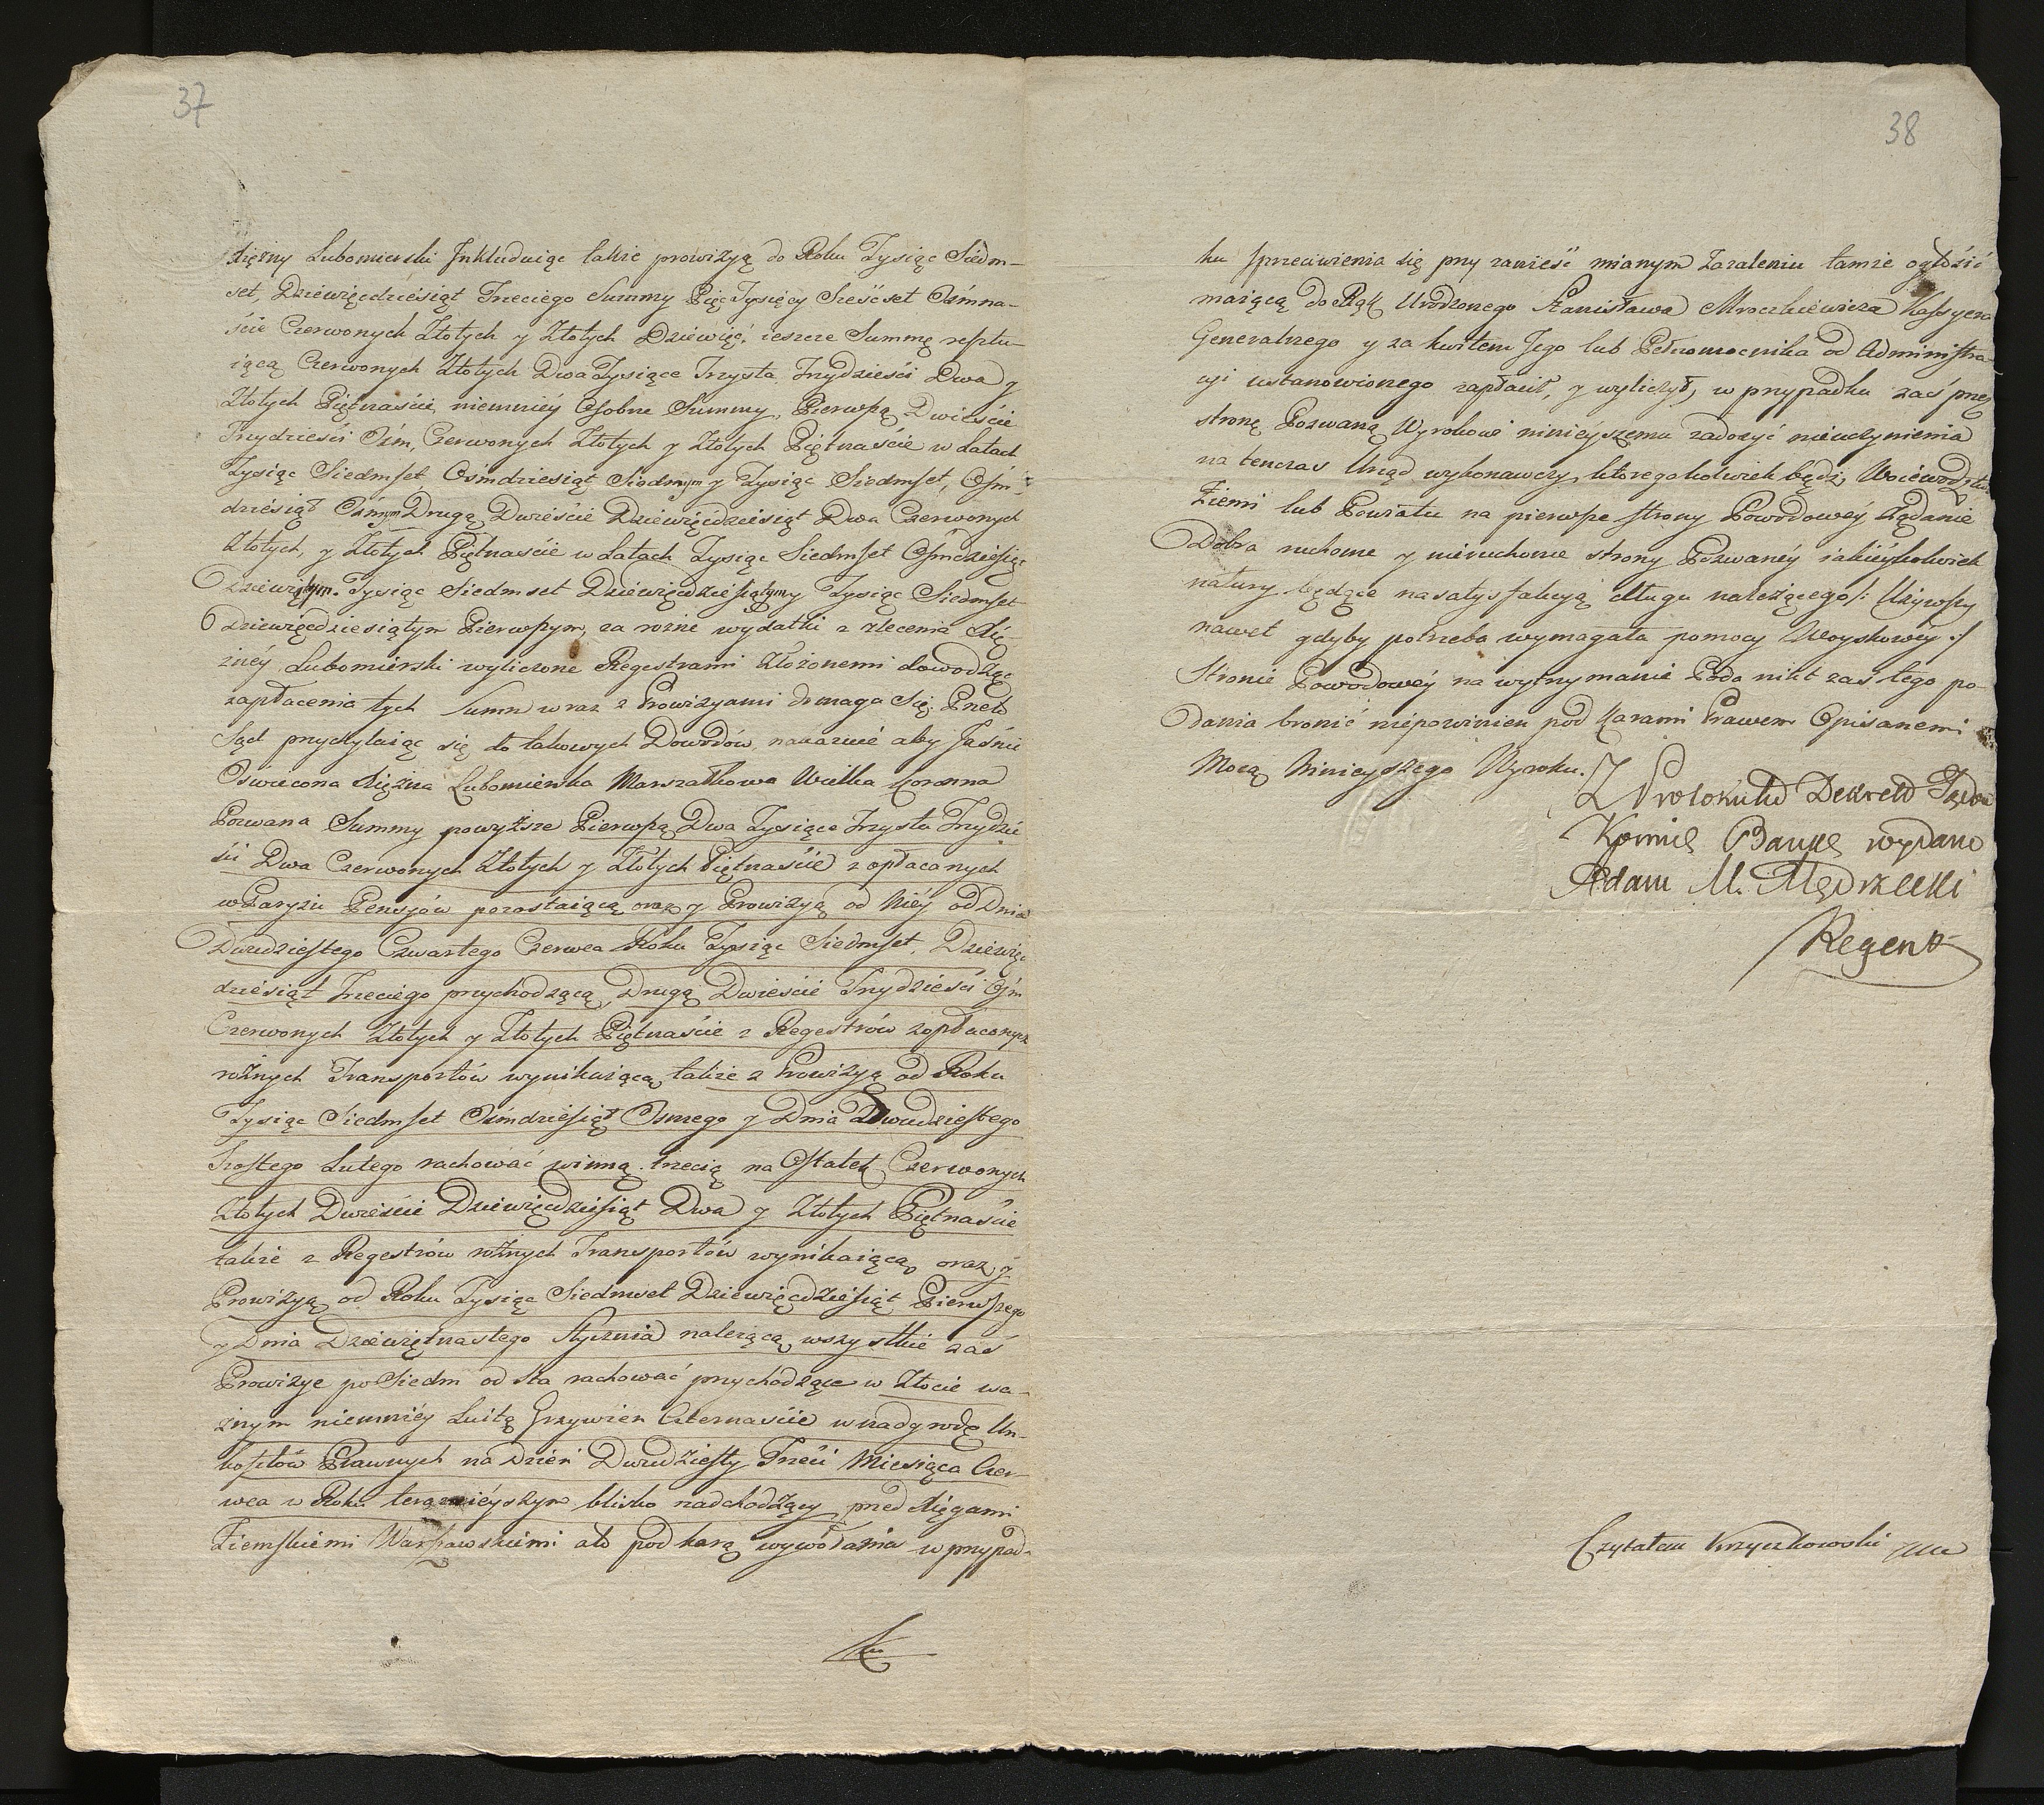 37
Xiężny Lubomirski Inkluduiąc także prowizyą do Roku Tysiąc Siedm-
set, Dziewięćdziesiąt Trzeciego Summy Pięć Tysięcy Sześćset Ośmna-
ście Czerwonych Złotych y Złotych Dziewięć, ieszcze Summę resztu-
iącą Czerwonych Złotych Dwa Tysiące Trzysta Trzydzieści Dwa y
Złotych Piętnaście, niemniéy Osobne Summy, Pierwszą Dwieście
Trzydzieści Ośm, Czerwonych Złotych y Złotych Piętnaście w Latach
Tysiąc Siedmset, Ośmdziesiąt Siodmym y Tysiąc Siedmset, Ośm-
dziesiąt Osmym Drugą Dwieście Dziewięćdziesiąt Dwa Czerwonych
Złotych, y Złotych Piętnaście w Latach Tysiąc Siedmset Ośmdziesiąt
Dziewiątym. Tysiąc Siedmset Dziewięćdziesiątym y Tysiąc Siedmset
Dziewięćdziesiątym Pierwszym, za rożne wydatki z zlecenia Xię-
żnéy Lubomirski wyliczone Regestrami Złożonemi dowodząc
zapłacenia tych Summ wraz z Prowizyami domaga Się. Przeto
Sąd przychylaiąc się do takowych Dowodów, nakazuié aby Jaśnie
Oświecona Xiężna Lubomirska Marszałkowa Wielka Koronna
Pozwana Summy powyższe Pierwszą Dwa Tysiące Trzysta Trzydzie
ści Dwa Czerwonych Złotych y Złotych Piętnaście z opłacanych
w Paryżu Pensyów pozostaiącą oraz y Prowizyą od Niéy od Dnia
Dwudziestego Czwartego Czerwca Roku Tysiąc Siedmset, Dziewięć
dziesiąt Trzeciego przychodzącą, Drugą Dwieście Trzydzieści Ośm
Czerwonych Złotych y Złotych Piętnaście z Regestrów zopłaconych
rożnych Transportów wynikaiącą, także z Prowizyą od Roku
Tysiąc Siedmset Ośmdziesiąt Osmego y Dnia Dwudziestego
Szostego Lutego rachować winną. trzecią na Ostatek Czerwonych
Złotych Dwieście Dziewięćdziesiąt Dwa y Złotych Piętnaście
także z Regestrów rożnych Transportów wynikaiącą, oraz y
Prowizyą od Roku Tysiąc Siedmset Dziewięćdziesiąt Pierwszego
y Dnia Dziewiętnastego Stycznia należącą, wszystkie zaś
Prowizye po Siedm od sta rachować przychodzące w Złocie wa-
żnym niemniéy Luitą Grzywien Czternaście w nadgrodę Un-
kosztów Prawnych na Dzień Dwudziesty Trzeci Miesiąca Czer-
wca w Roku teraznieyszym blisko nadchodzący, przed Xięgami
Ziemskiemi Warszawskiemi ato pod karą wywołania w przypad-
38
ku sprzeciwienia się przy zanieść mianym Zazaleniu tamże ogłosić
maiącą do Rąk Urodzonego Stanisława Mroczkiewicza Kassyera
Generalnego y za kwitem Jego lub Pełnomocnika od Administra-
cyi ustanowionego zapłacił, y wyliczył, w przypadku zaś przez
stronę Pozwaną Wyrokowi ninieyszemu zadosyć nieuczynienia
na tenczas Urząd wykonawczy, ktoregokolwiek bądź Woiewodztwa
Ziemi lub Powiatu na pierwsze strony Powodowéy Żądanie
Dobra ruchome y nieruchome strony Pozwanéy iakieykolwiek
natury będące na satysfakcyą długu należącego /: Użiwszy
nawet gdyby potrzeba wymagała pomocy Woyskowéy :/
Stronie Powodowéy na wytrzymanie Poda nikt zaś tego po-
dania bronić niepowinien pod Karami Prawem Opisanemi
Mocą Ninieyszego Wyroku.
Z Protokułu Dekretó Sądu
Kommis Banke wydane
Adam M. Mędrzecki
Regent
Czytałem Krzyczkowski